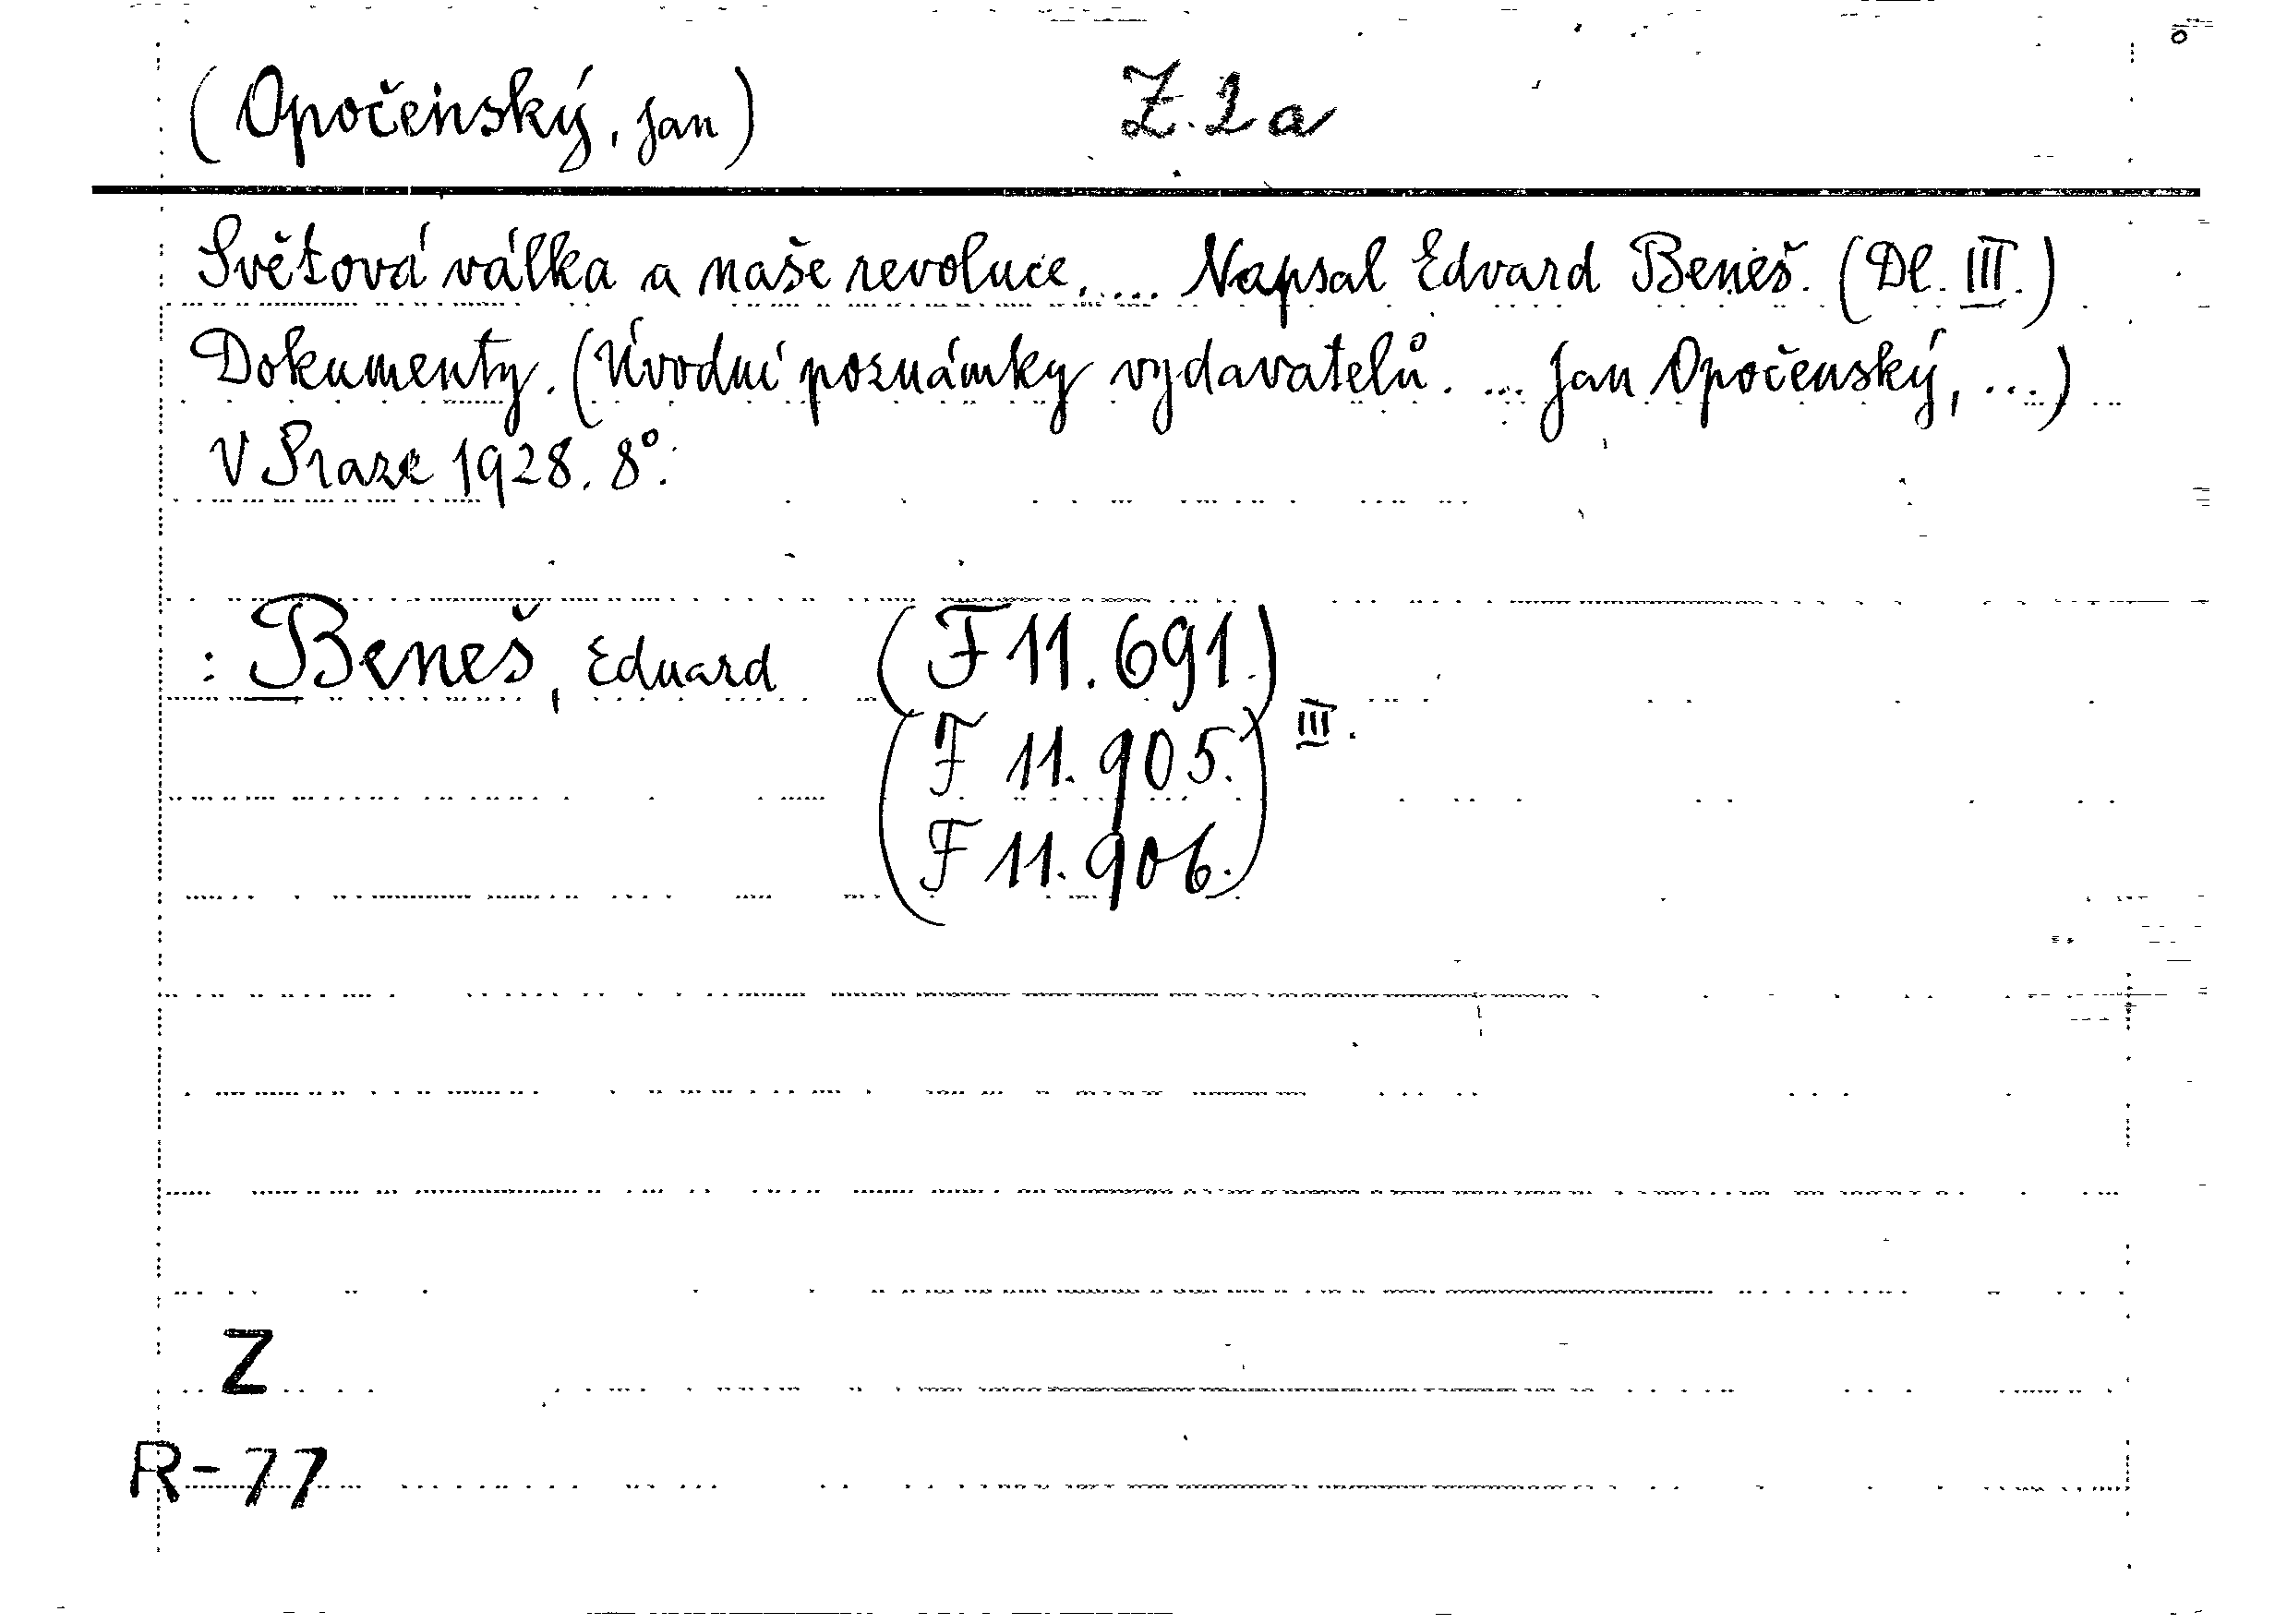 (Opočenský, Jan) Z.2a
Světová válka a naše revoluce. ... Napsal Edvard Beneš. (Dl. III.)
Dokumenty. (Úvodní poznámky vydavatelů. ... Jan Opočenský, ...)
V Praze 1928. 8°.
: Beneš, Eduard (F 11.691.)
(F 11.905. III.
F 11.906.)
Z
R-77